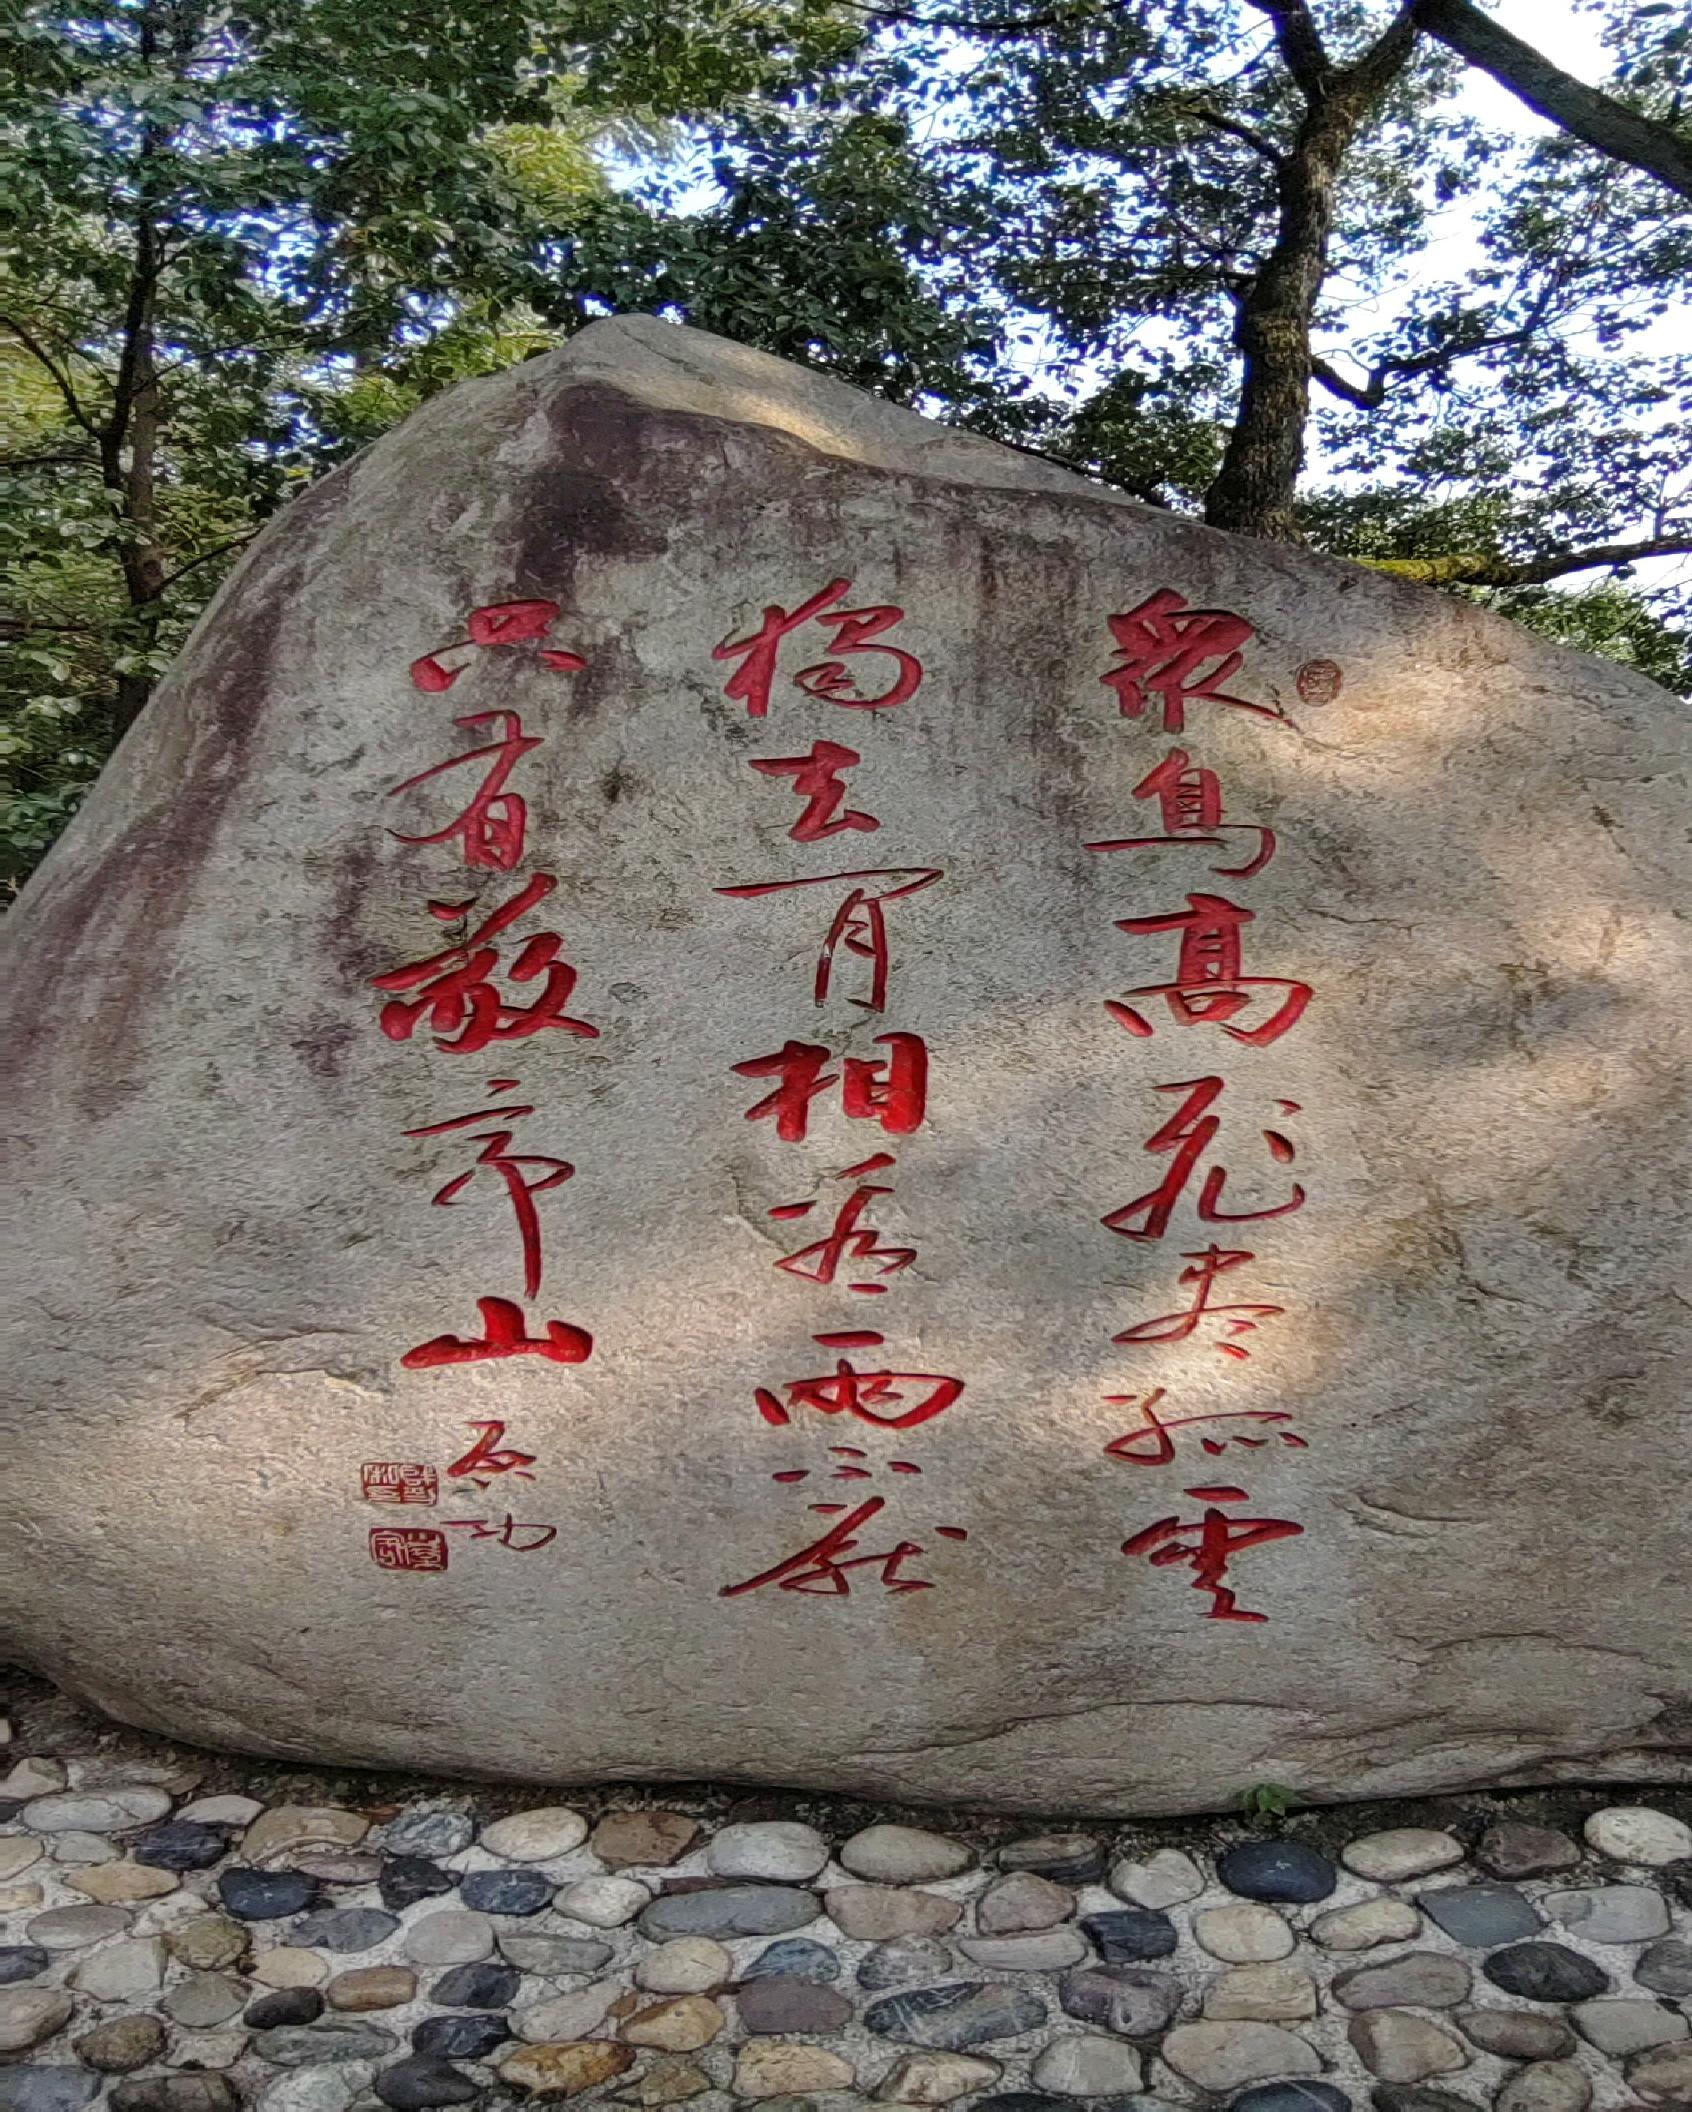 眾鳥高飛盡孤雲
獨去閒相看兩不厭
只有敬亭山
启功